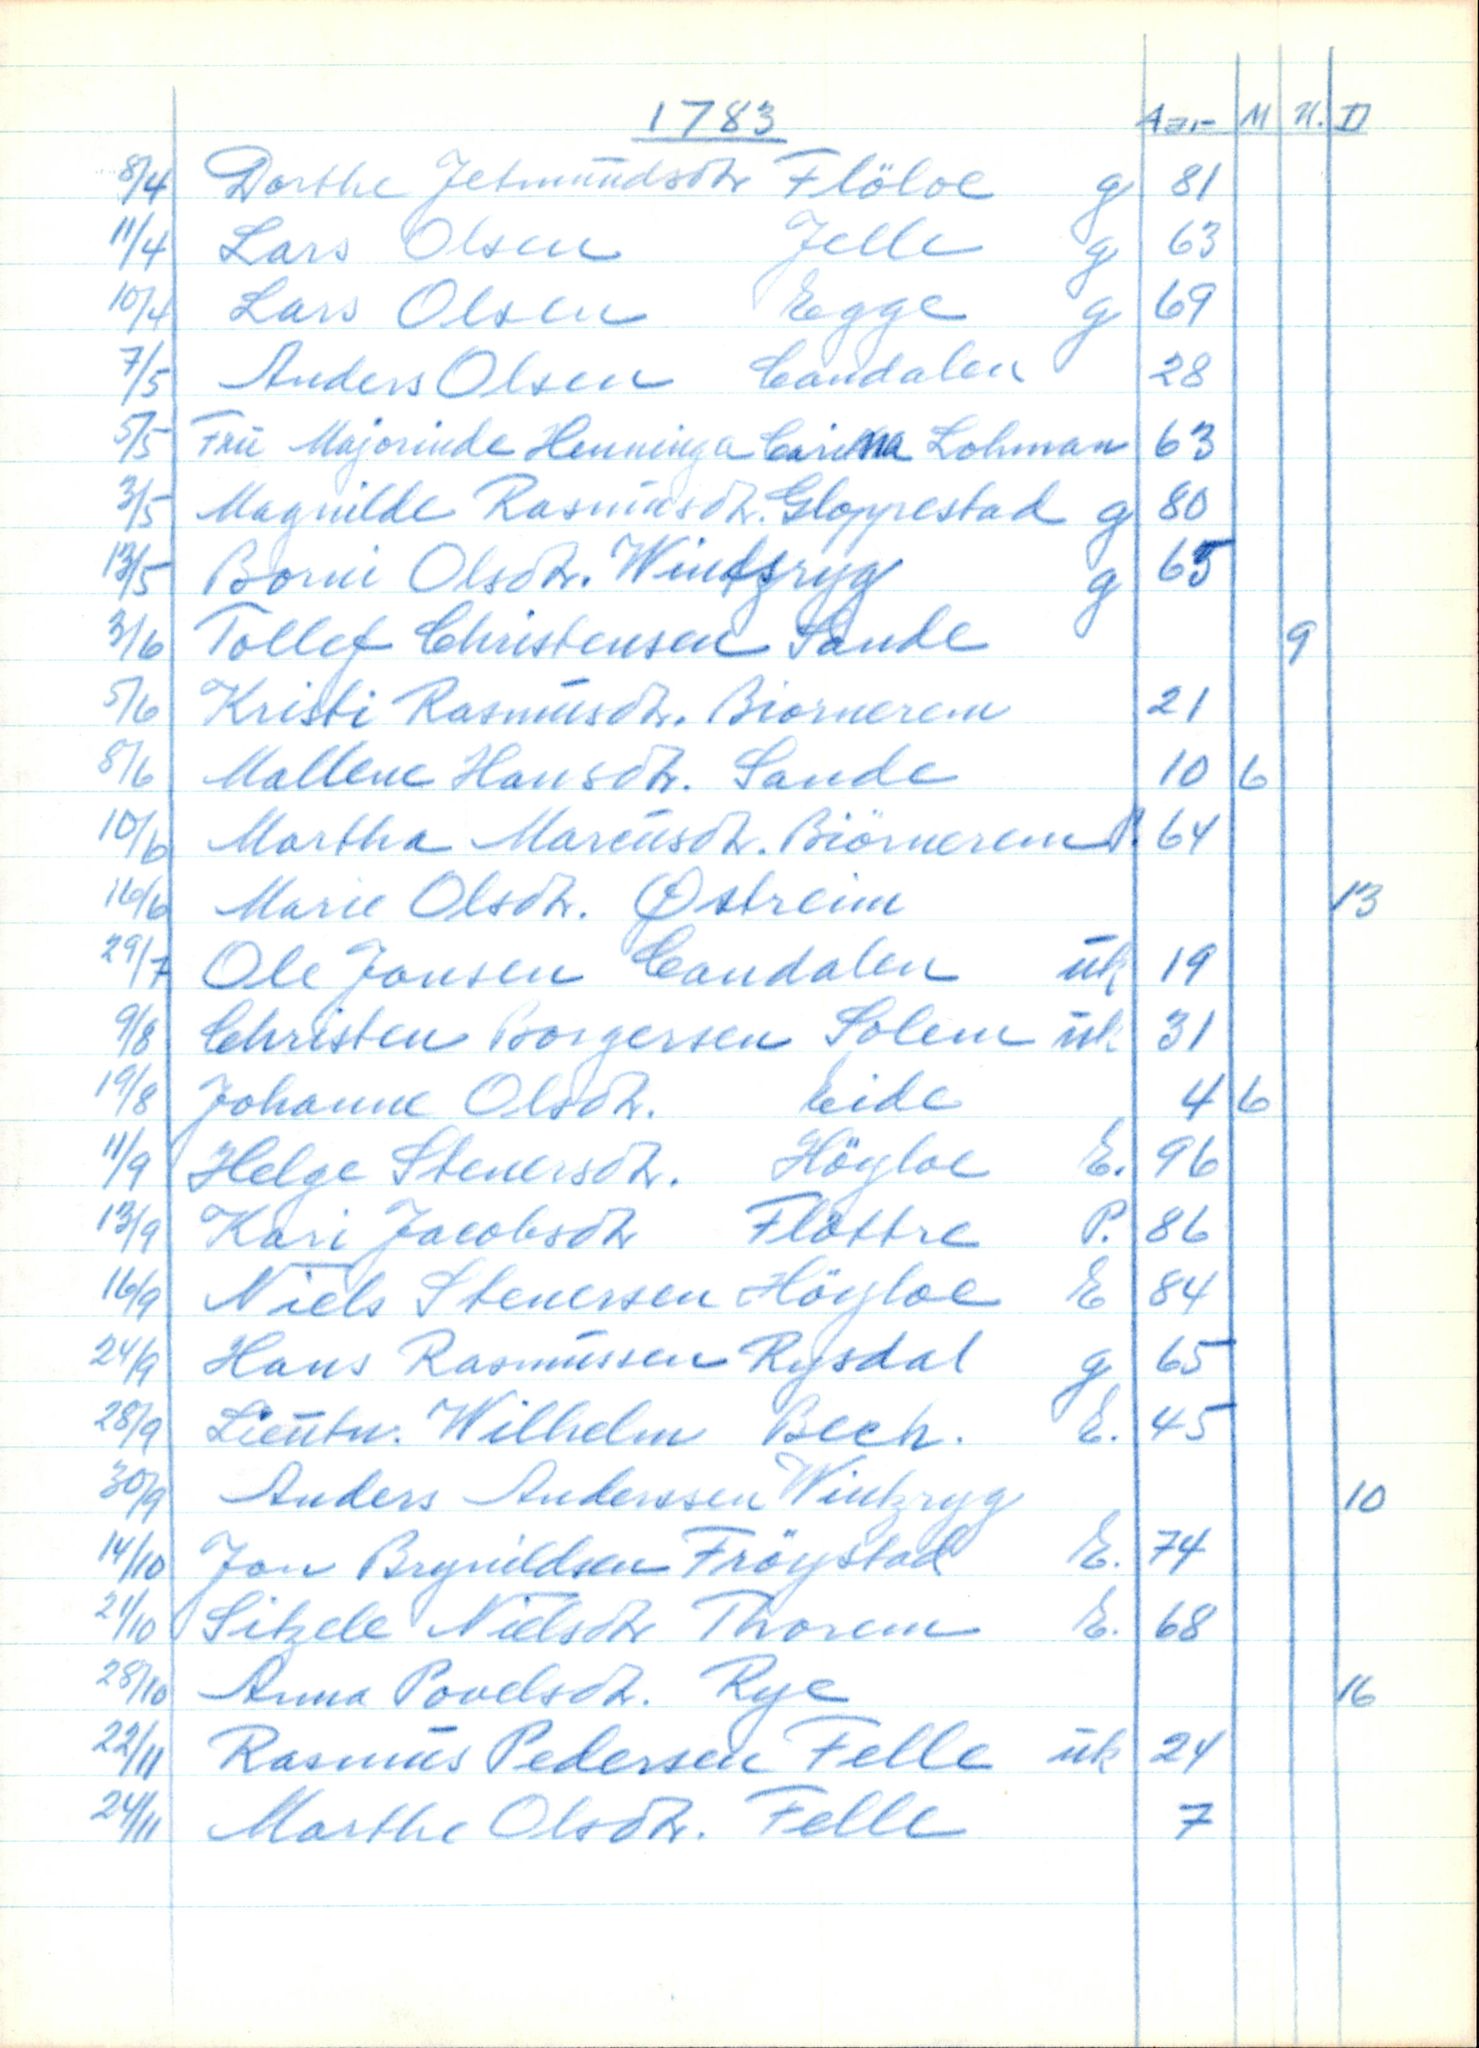 1783 Aar M U. D
8/4 Dorthe Jetmundsdtr Flöloe g 81
11/4 Lars Olsen Jelle g 63
10/4 Lars Olsen Egge g 69
7/5 Anders Olsen Candalen 28
5/5 Frü Majorinde Henninga Carina Lohman 63
3/5 Magnilde Rasmüsdtr. Gloppestad g 80
13/5 Borni Olsdtr. Windsryg g 65
3/6 Tollef Christensen Sande 9
5/6 Kristi Rasmüsdtr. Biornerem 21
8/6 Mallene Hansdtr. Sande 10 6
10/6 Martha Marcüsdtr. Biörnerem P. 64
16/6 Marie Olsdtr. Østreim 13
29/7 Ole Jonsen Candalen ük 19
9/8 Christen Borgersen Solem ük 31
19/8 Johanne Olsdtr. Eide 4 6
11/9 Helge Stenersdtr. Höyloe E. 96
13/9 Kari Jacobsdtr Flottre P. 86
16/9 Niels Stenersen Höyloe E 84
24/9 Hans Rasmüssen Rysdal g 65
28/9 Lieütn. Wilhelm Bech. E. 45
30/9 Anders Anderssen Wintzryg 10
14/10 Jon Brynildsen Fröystad E. 74
21/10 Sitzele Nielsdtr Thorem E. 68
28/10 Anna Povelsdtr. Rye 16
22/11 Rasmüs Pedersen Felle ük 24
24/11 Marthe Olsdtr. Felle 7